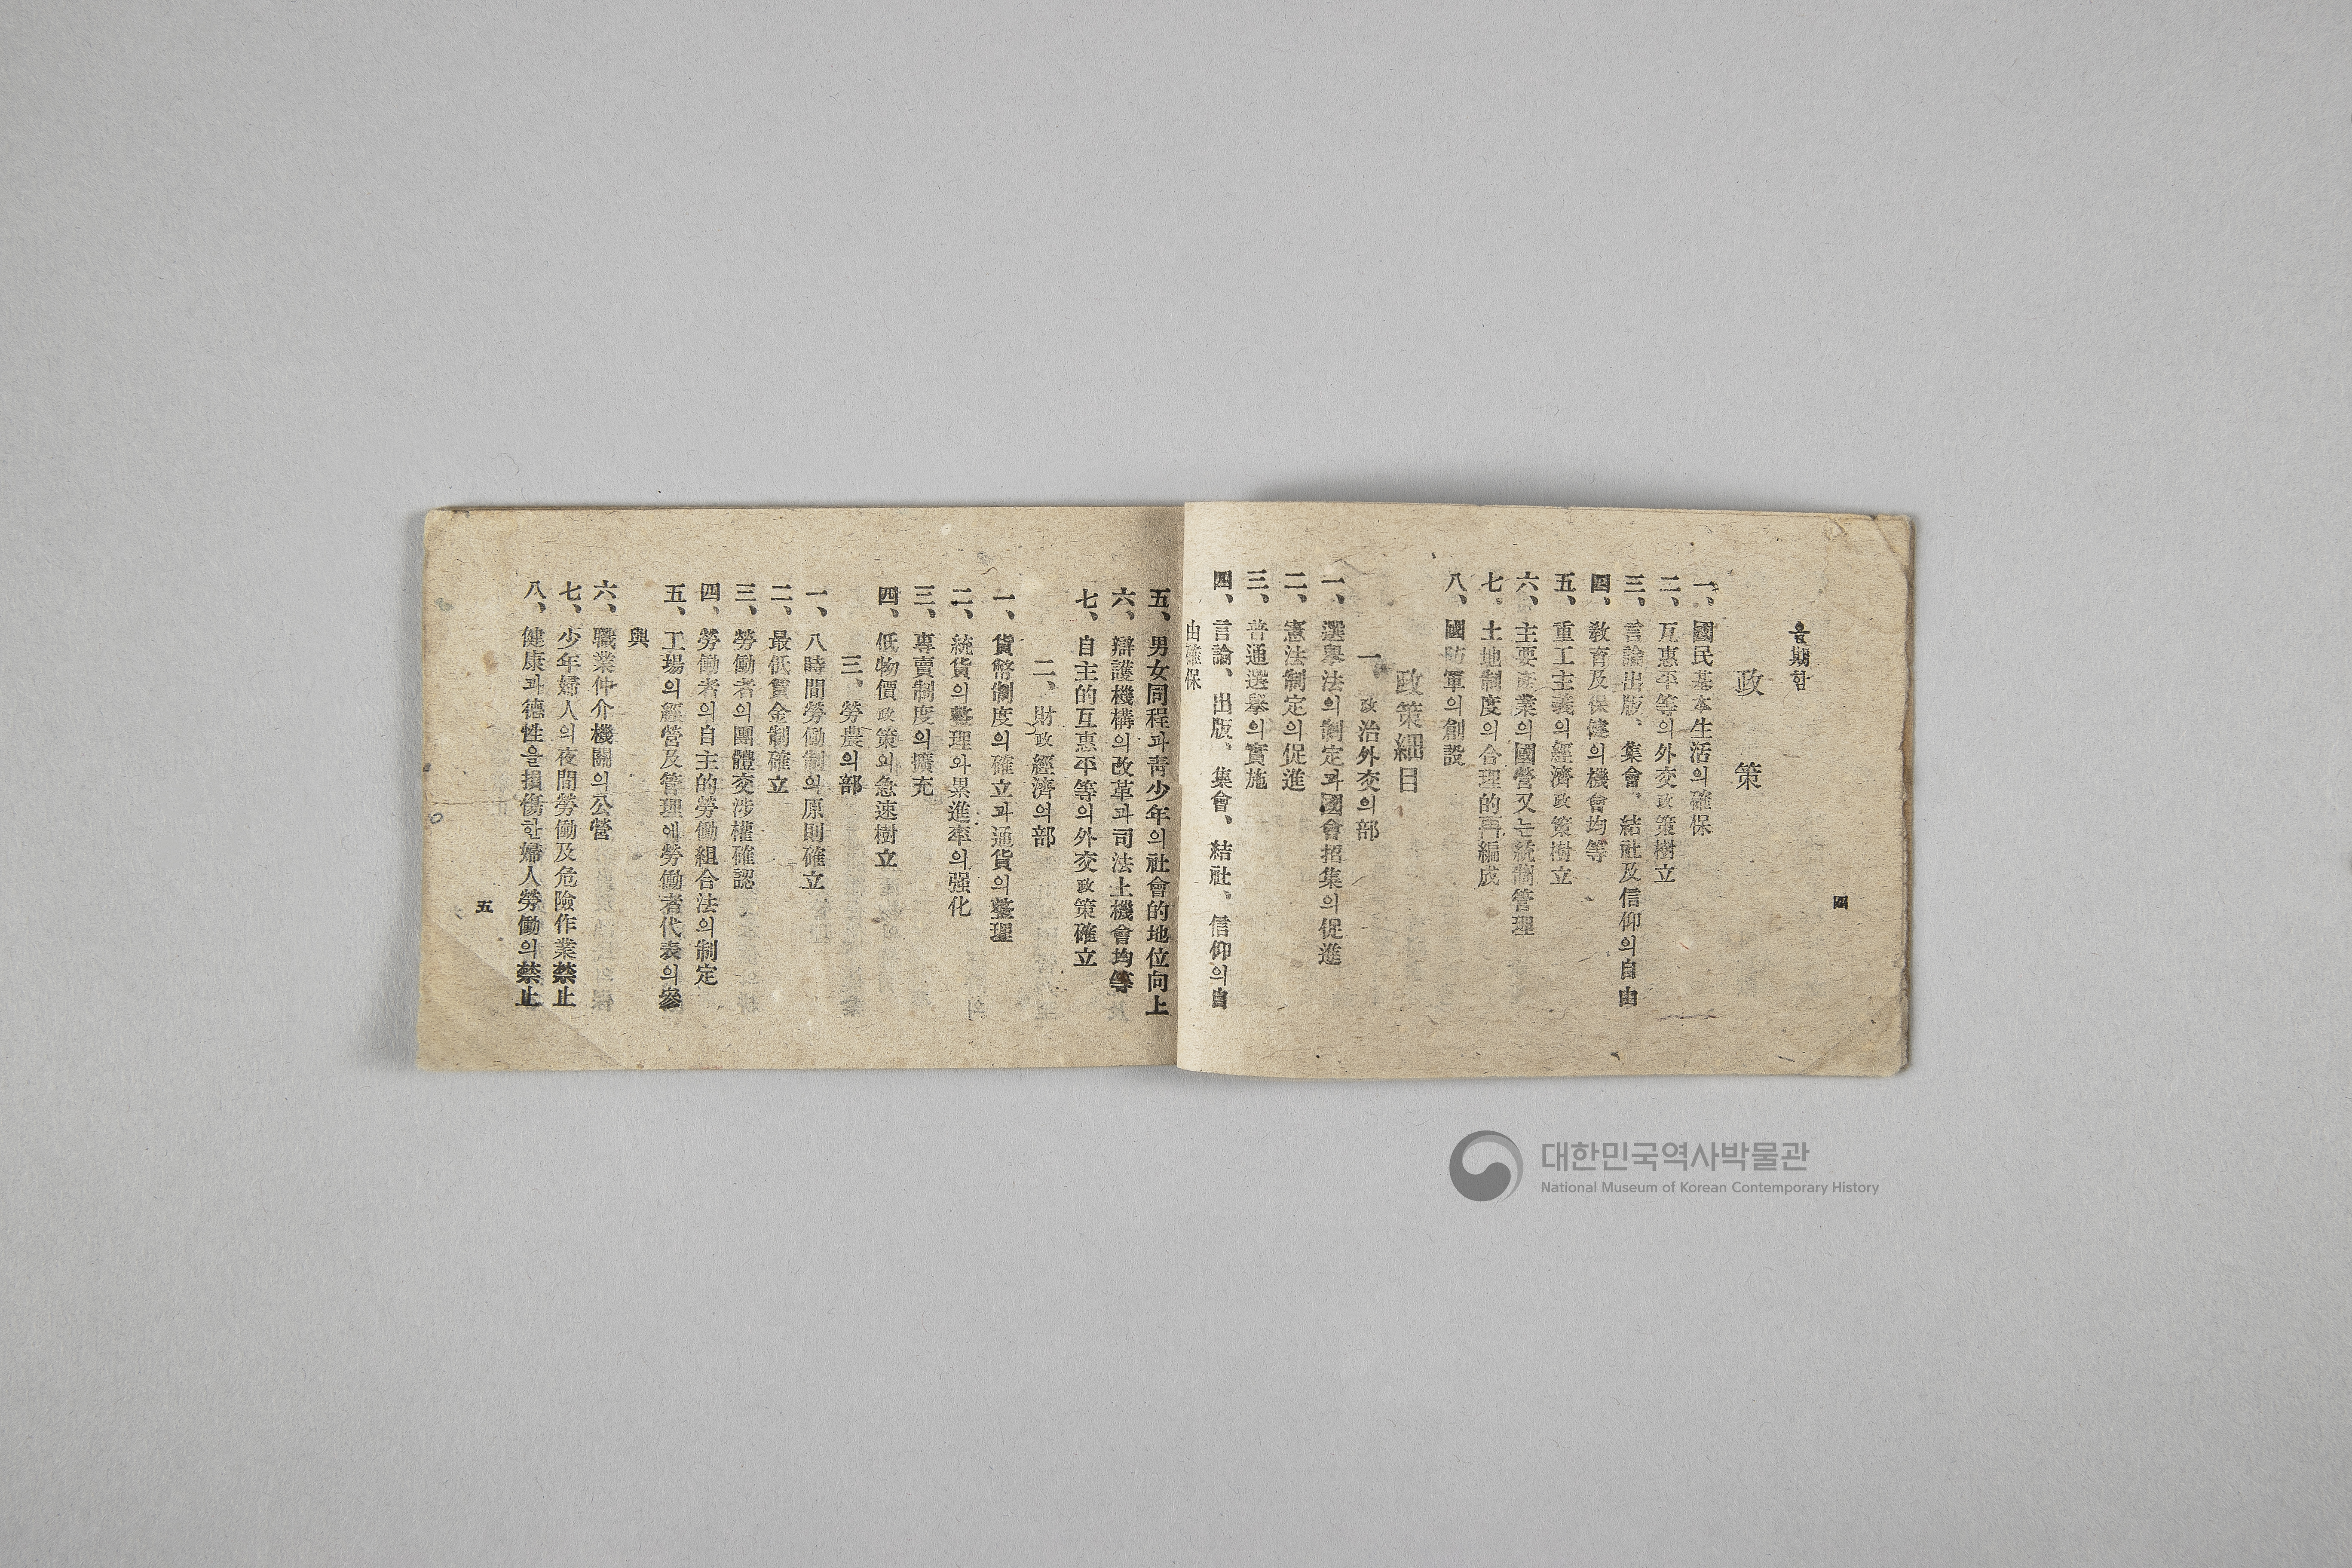 四
을期함
政策
一、國民基本生活의確保
二、互惠平等의外交政策樹立
三、言論出版、集會、結社及信仰의自由
四、敎育及保健의機會均等
五、重工主義의經濟政策樹立
六、主要産業의國營又는統制管理
七、土地制度의合理的再編成
八、國防軍의創設
政策細目
一、政治外交의部
一、選擧法의制定과國會招集의促進
二、憲法制定의促進
三、普通選擧의實施
四、言論、出版、集會、結社、信仰의自
由確保
五、男女同程과靑少年의社會的地位向上
六、辯護機構의改革과司法上機會均等
七、自主的互惠平等의外交政策確立
二、財政經濟의部
一、貨幣制度의確立과通貨의整理
二、統貨의整理와累進率의强化
三、專賣制度의擴充
四、低物價政策의急速樹立
三、勞農의部
一、八時間勞働制의原則確立
二、最低賃金制確立
三、勞働者의團體交涉權確認
四、勞働者의自主的勞働組合法의制定
五、工場의經營及管理에勞働者代表의參
與
六、職業仲介機關의公營
七、少年婦人의夜間勞働及危險作業禁止
八、健康과德性을損傷한婦人勞働의禁止
五
대한민국역사박물관
National Museum of Korean Contemporary History